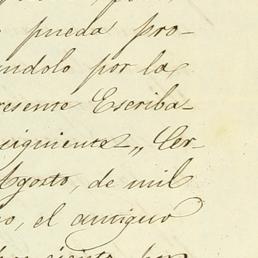 pueda pro-
ndolo por la
resente Escriba-
siguiente „ Cer-
Agosto, de mil
o, el antiguo